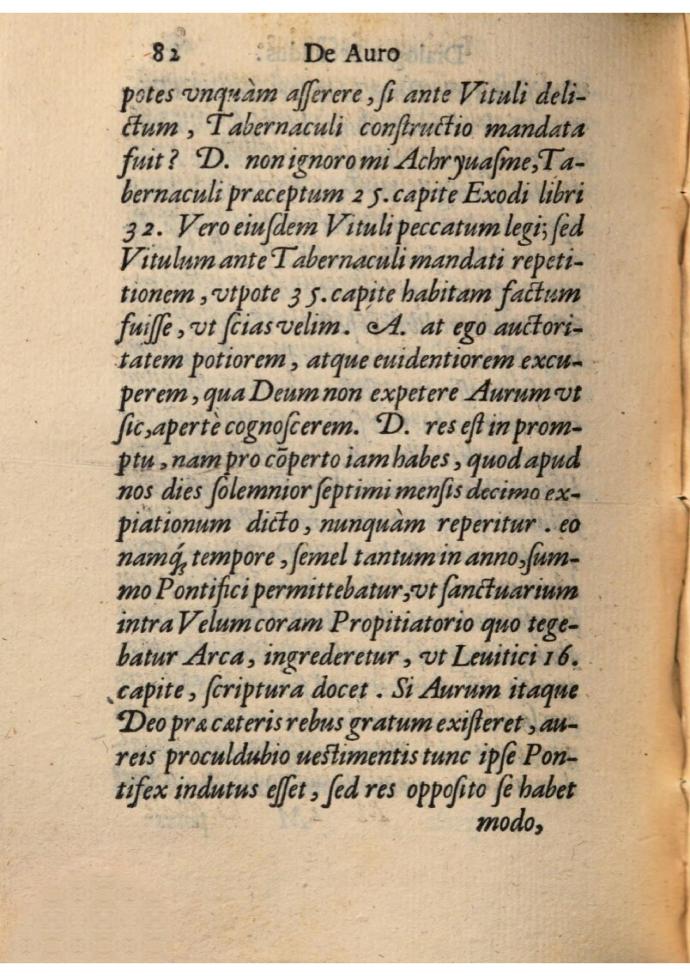 82 De Auro
potes vnquàm aſſerere, ſi ante Vituli deli-
ctum, Tabernaculi conſtructio mandata
fuit? D. non ignoro mi Achryuaſme, Ta-
bernaculi præceptum 25. capite Exodi libri
32. Vero eiuſdem Vituli peccatum legi; ſed
Vitulum ante Tabernaculi mandati repeti-
tionem, vtpote 35. capite habitam factum
fuiſſe, vt ſcias velim. A. at ego auctori-
tatem potiorem, atque euidentiorem excu-
perem, qua Deum non expetere Aurum vt
ſic, apertè cognoſcerem. D. res eſt in prom-
ptu, nam pro cōperto iam habes, quod apud
nos dies ſolemnior ſeptimi menſis decimo ex-
piationum dicto, nunquàm reperitur. eo
namq́; tempore, ſemel tantum in anno, ſum-
mo Pontifici permittebatur, vt ſanctuarium
intra Velum coram Propitiatorio quo tege-
batur Arca, ingrederetur, vt Leuitici 16.
capite, ſcriptura docet. Si Aurum itaque
Deo præ cæteris rebus gratum exiſteret, au-
reis proculdubio ueſtimentis tunc ipſe Pon-
tifex indutus eſſet, ſed res oppoſito ſe habet
modo,